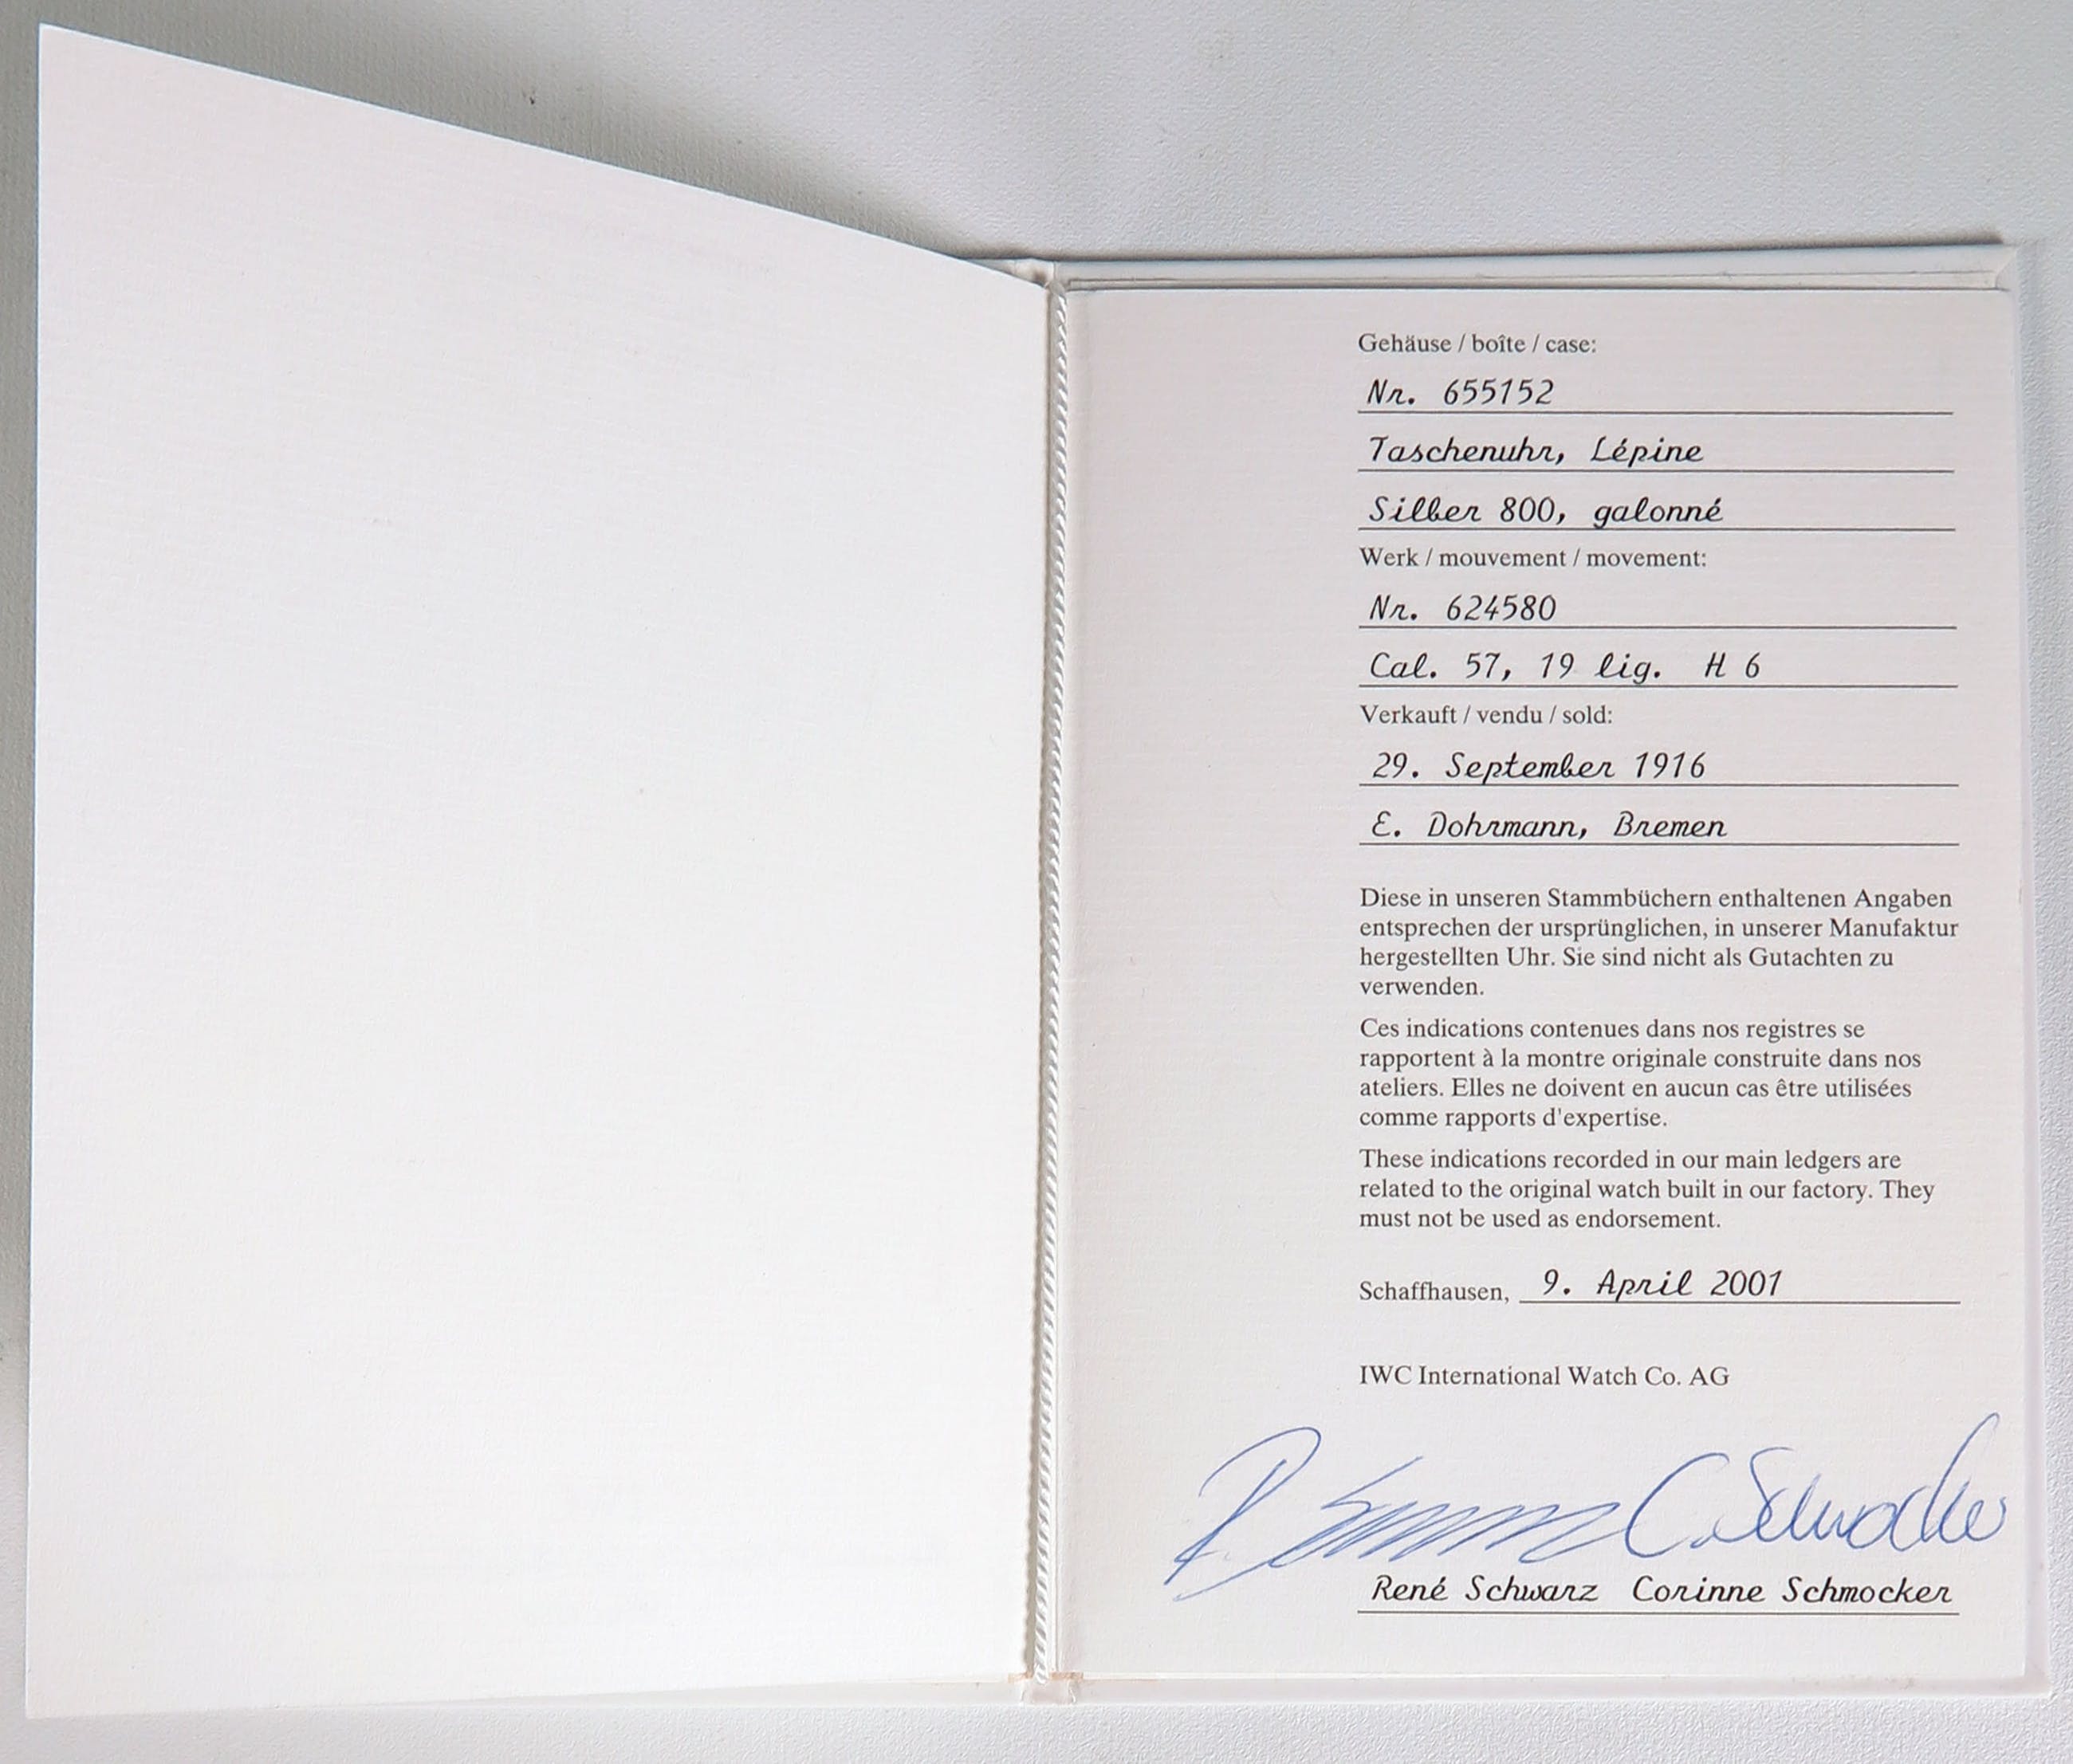 Gehäuse / boîte / case:
Nr. 655152
Taschenuhr, Lépine
Silber 800, galonné
Werk / mouvement / movement:
Nr. 624580
Cal. 57, 19 lig. H 6
Verkauft / vendu / sold:
29. September 1916
E. Dohrmann, Bremen
Diese in unseren Stammbüchern enthaltenen Angaben
entsprechen der ursprünglichen, in unserer Manufaktur
hergestellten Uhr. Sie sind nicht als Gutachten zu
verwenden.
Ces indications contenues dans nos registres se
rapportent à la montre originale construite dans nos
ateliers. Elles ne doivent en aucun cas être utilisées
comme rapports d'expertise.
These indications recorded in our main ledgers are
related to the original watch built in our factory. They
must not be used as endorsement.
Schaffhausen, 9. April 2001
IWC International Watch Co. AG
C. Schmocker
René Schwarz Corinne Schmocker